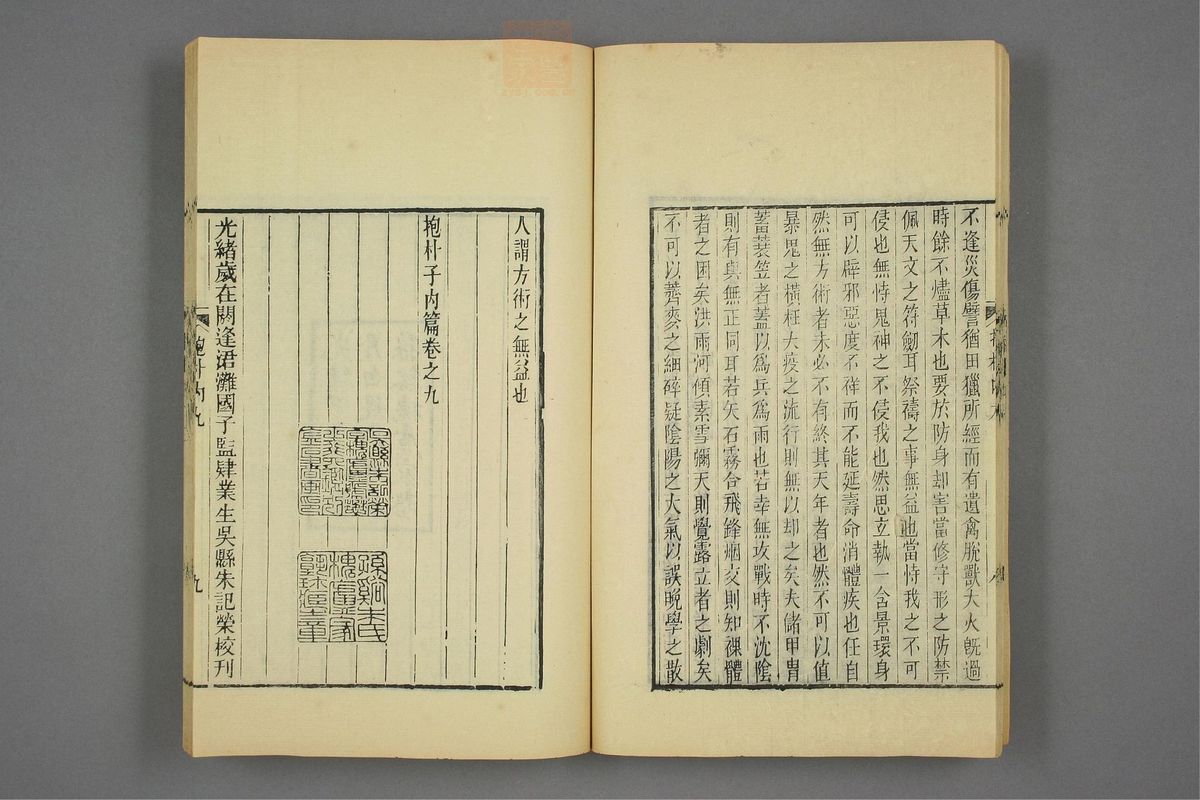 不逢災傷譬猶田獵所經而有遺禽脫獸大火旣過
時餘不燼草木也要於防身却害當修守形之防禁
佩天文之符劒耳祭禱之事無益也當恃我之不可
侵也無恃鬼神之不侵我也然思立執一含景環身
可以辟邪惡度不祥而不能延壽命消體疾也任自
然無方術者未必不有終其天年者也然不可以值
暴鬼之橫枉大疫之流行則無以却之矣夫儲甲冑
蓄蓑笠者蓋以爲兵爲雨也若幸無攻戰時不沈陰
則有與無正同耳若矢石霧合飛鋒烟交則知裸體
者之困矣洪雨河傾素雪彌天則覺露立者之劇矣
不可以薺麥之細碎疑陰陽之大氣以誤晚學之散
人謂方術之無益也
抱朴子內篇卷之九
光緒歲在閼逢涒灘國子監肄業生吳縣朱記榮校刊
抱朴內九
九